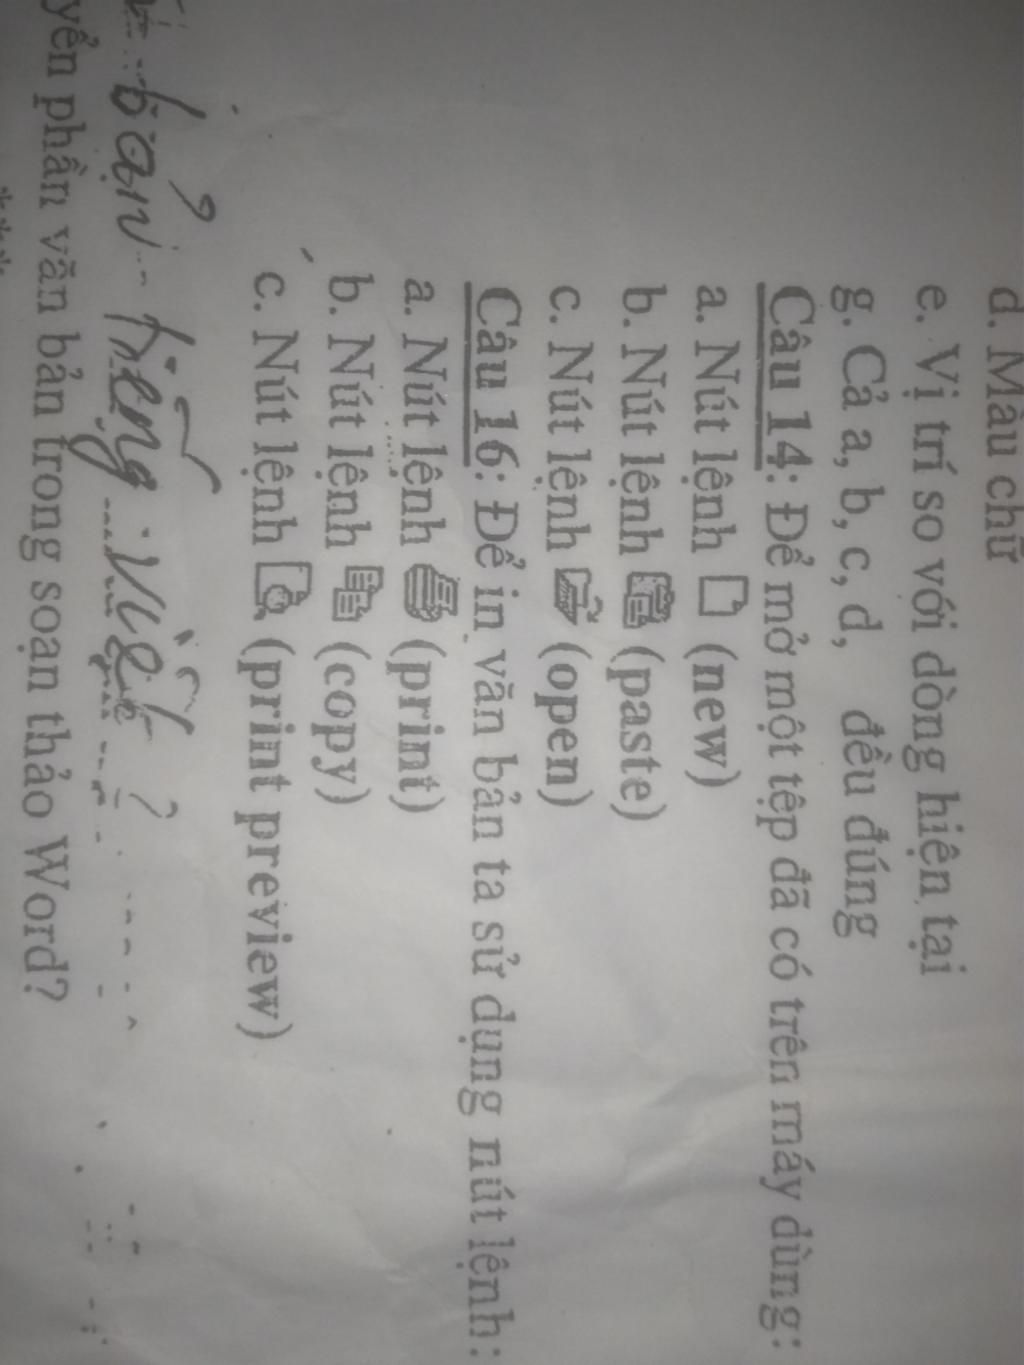 d. Màu chữ
e. Vị trí so với dòng hiện tại
g. Cả a, b, c, d, đều đúng
Câu 14: Để mở một tệp đã có trên máy dùng:
a. Nút lệnh (new)
b. Nút lệnh (paste)
c. Nút lệnh (open)
Câu 16: Để in văn bản ta sử dụng nút lệnh:
a. Nút lệnh (print)
b. Nút lệnh (copy)
c. Nút lệnh (print preview)
bản tiếng việt ?
yển phần văn bản trong soạn thảo Word?
***